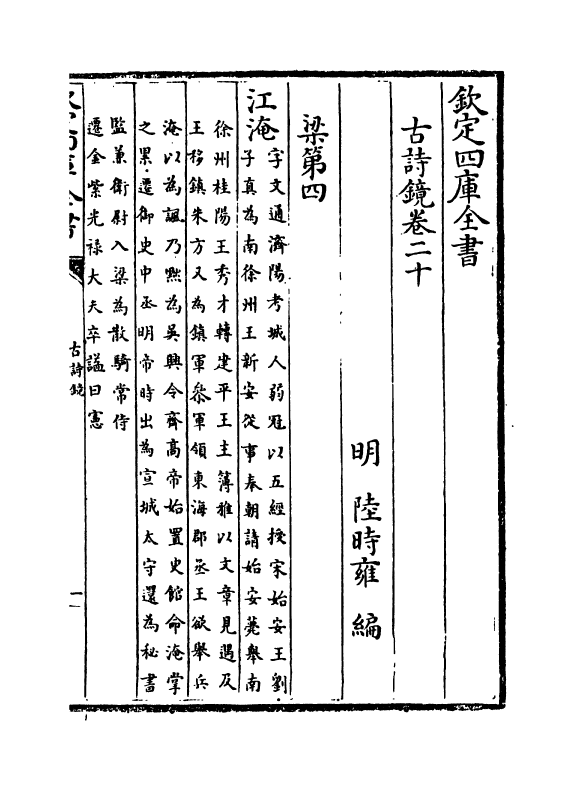 欽定四庫全書
古詩鏡卷二十
明 陸時雍 編
梁第四
江淹
字文通濟陽考城人弱冠以五經授宋始安王劉
子真為南徐州王新安從事奉朝請始安薨舉南
徐州桂陽王秀才轉建平王主簿雅以文章見遇及
王移鎮朱方又為鎮軍叅軍領東海郡丞王欲舉兵
淹以為諷乃黜為吳興令齊髙帝始置史館命淹掌
之累遷御史中丞明帝時出為宣城太守還為秘書
監兼衛尉入梁為散騎常侍
遷金紫光祿大夫卒諡曰憲
古詩鏡
一